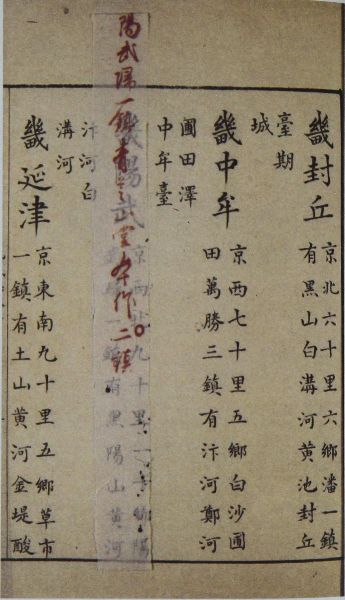 畿封丘
京北六十里六鄉潘一鎮
有黑山白溝河黃池封丘
臺期
城
畿中牟
京西七十里五鄉白沙圃
田萬勝三鎮有汴河鄭河
圃田澤
中牟臺
陽武 一鎮 武堂本作二鎮
畿陽武
京 九十里 陽
有黑陽山黃河
汴河白
溝河
畿延津
京東南九十里五鄉草市
一鎮有土山黃河金堤酸